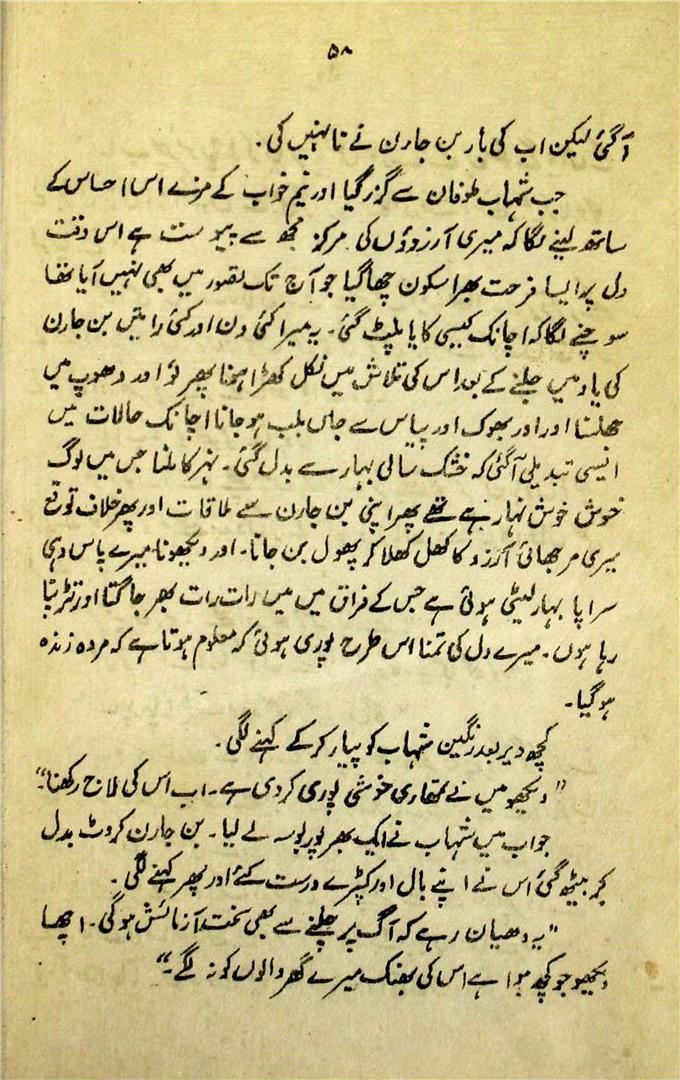 ۵۸
آگئی لیکن اب کی بار بن جارن نے نا نہیں کی۔
جب شہاب طوفان سے گزر گیا اور نیم خواب کے مزے اس احساس کے
ساتھ لینے لگا کہ میری آرزوؤں کی مرکز مجھ سے پیوست ہے اس وقت
دل پر ایسا فرحت بھرا سکون چھا گیا جو آج تک تصور میں بھی نہیں آیا تھا
سوچنے لگا کہ اچانک کیسی کایا پلٹ گئی۔ یہ میرا کئی دن اور کئی راتیں بن جارن
کی یاد میں جلنے کے بعد اس کی تلاش میں نکل کھڑا ہونا پھر لُو اور دھوپ میں
جھلسنا اور اور بھوک اور پیاس سے جاں بلب ہو جانا اچانک حالات میں
ایسی تبدیلی آگئی کہ خشک سالی بہار سے بدل گئی۔ نہر کا ملنا جس میں لوگ
خوش خوش نہا رہے تھے پھر اپنی بن جارن سے ملاقات اور پھر خلاف توقع
میری مرجھائی آرزو کا کھل کھلا کر پھول بن جانا۔ اور دیکھو نا میرے پاس وہی
سراپا بہار لیٹی ہوئی ہے جس کے فراق میں میں رات رات بھر جاگتا اور تڑپتا
رہا ہوں۔ میرے دل کی تمنا اس طرح پوری ہوئی کہ معلوم ہوتا ہے کہ مردہ زندہ
ہو گیا۔
کچھ دیر بعد رنگین شہاب کو پیار کر کے کہنے لگی۔
”دیکھو میں نے تمھاری خوشی پوری کر دی ہے۔ اب اس کی لاج رکھنا۔“
جواب میں شہاب نے ایک بھرپور بوسہ لے لیا۔ بن جارن کروٹ بدل
کر بیٹھ گئی اس نے اپنے بال اور کپڑے درست کئے اور پھر کہنے لگی۔
”یہ دھیان رہے کہ آگ پر چلنے سے بھی سخت آزمائش ہوگی۔ اچھا
دیکھو جو کچھ ہوا ہے اس کی بھنک میرے گھر والوں کو نہ لگے۔“